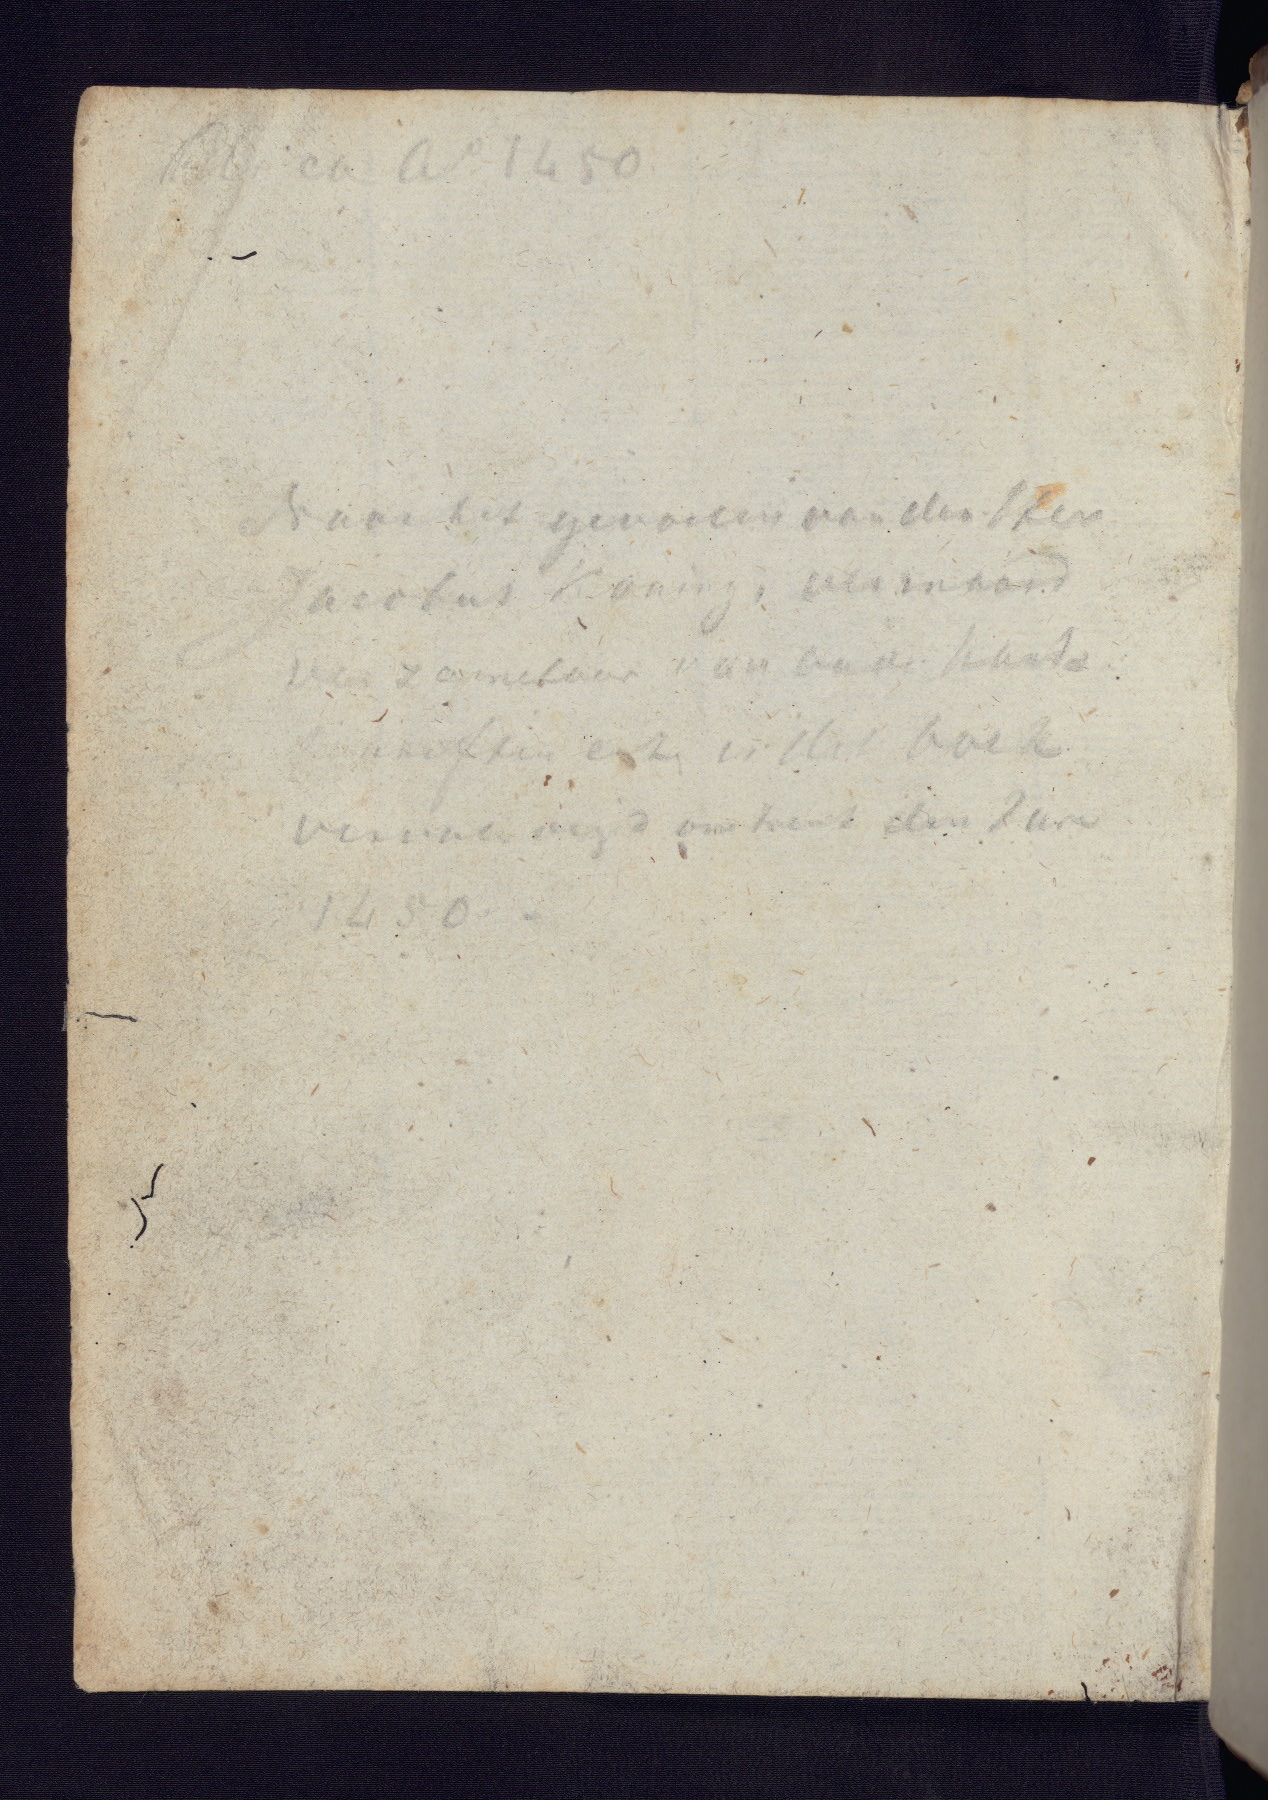 ca Aº 1450
Naar het gevoelen van den Heer
Jacobus Koning, vermaard
verzamelaar van oude hand-
schriften enz. is dit boek
vervaardigd omtrent den Jare
1450.